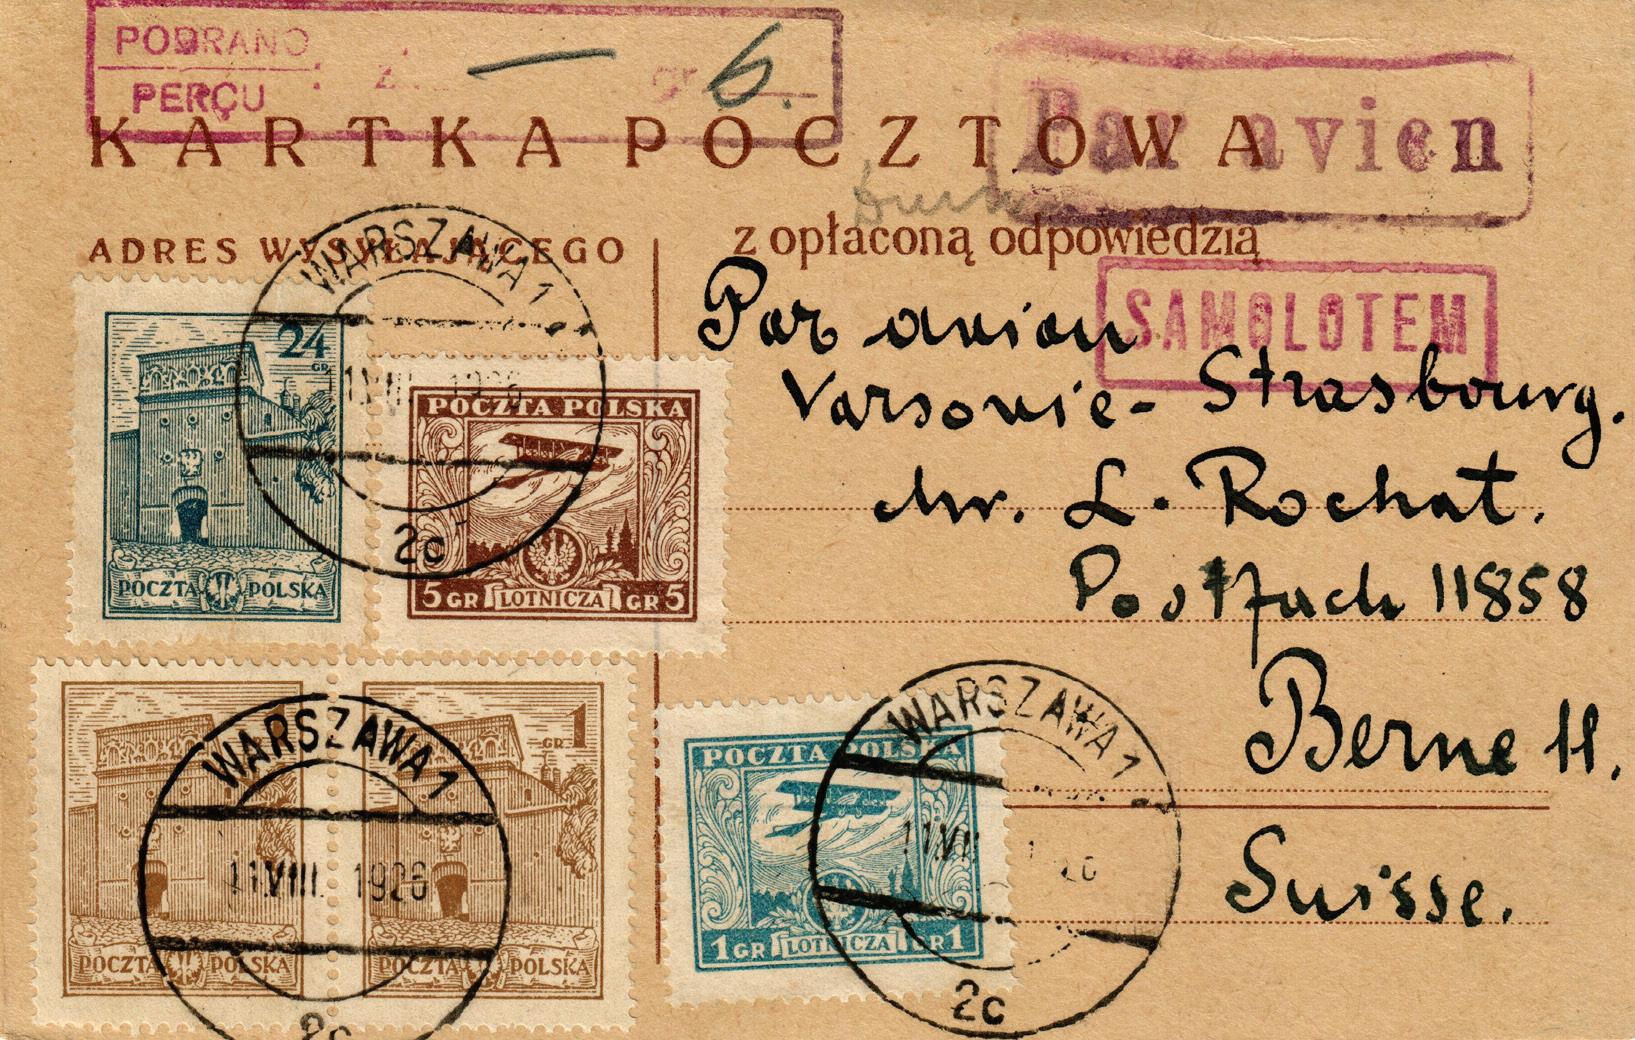 POBRANO
PERÇU : Zł. — gr 6.
KARTKA POCZTOWA
Par avion
ADRES WYSYŁAJĄCEGO
z opłaconą odpowiedzią
SAMOLOTEM
Par avion
Varsovie - Strasbourg.
Mr. L. Rochat.
Postfach 11858
Berne 11.
Suisse.
WARSZAWA 1
11.VIII. 1926
2c
24
GR
POCZTA POLSKA
POCZTA POLSKA
5 GR LOTNICZA GR 5
WARSZAWA 1
11.VIII. 1926
2c
POCZTA POLSKA
GR 1
POCZTA POLSKA
WARSZAWA 1
11.VIII. 1926
2c
POCZTA POLSKA
1 GR LOTNICZA GR 1